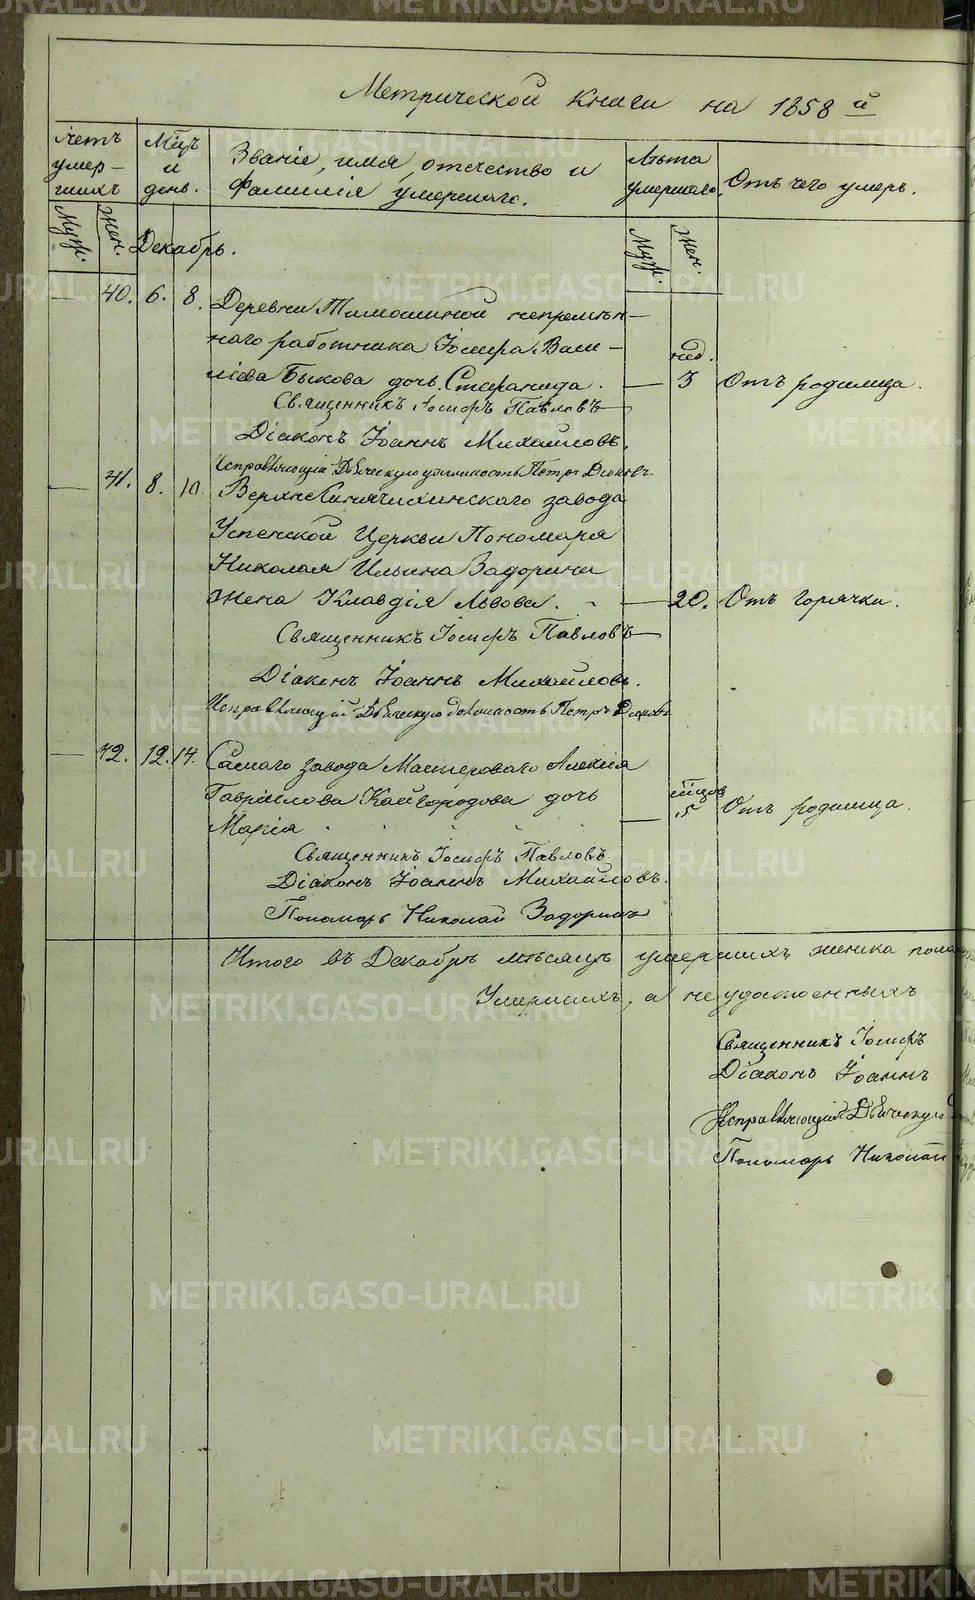 Метрической книги на 1858 й
Счетъ умер-шихъ
Мцъ и день.
Званіе, имя, отечество и
Фамилія умершаго.
Лѣта умершаго.
Отъ чего умеръ.
Муж. Жен.
Декабрь.
Муж. Жен.
— 40. 6. 8. Деревни Тимошиной непремѣн-
наго работника Іосифа Васи-
ліева Быкова дочь Стефанида. — нед. 3 Отъ родимца.
Священникъ Іосифъ Павловъ
Діаконъ Іоаннъ Михайловъ.
Исправляющій Дьяческую должность Петръ
— 41. 8. 10. Верхнесинячихинскаго завода
Успенской Церкви Пономаря
Николая Ильина Задорина
жена Клавдія Львова. — 20. Отъ горячки.
Священникъ Іосифъ Павловъ
Діаконъ Іоаннъ Михайловъ.
Исправляющій Дьяческую должность Петръ
— 42. 12. 14. Самаго завода Мастероваго Алексія
Гавріилова Кайгородова дочь
Марія — мцов 5 Отъ родимца.
Священникъ Іосифъ Павловъ
Діаконъ Іоаннъ Михайловъ.
Пономарь Николай Задоринъ
Итого въ Декабрѣ мѣсяцѣ умершихъ женска пола
Умершихъ, а неудостоенныхъ
Священникъ Іосифъ
Діаконъ Іоаннъ
Исправляющій Дьяческую
Пономарь Николай
METRIKI.GASO-URAL.RU